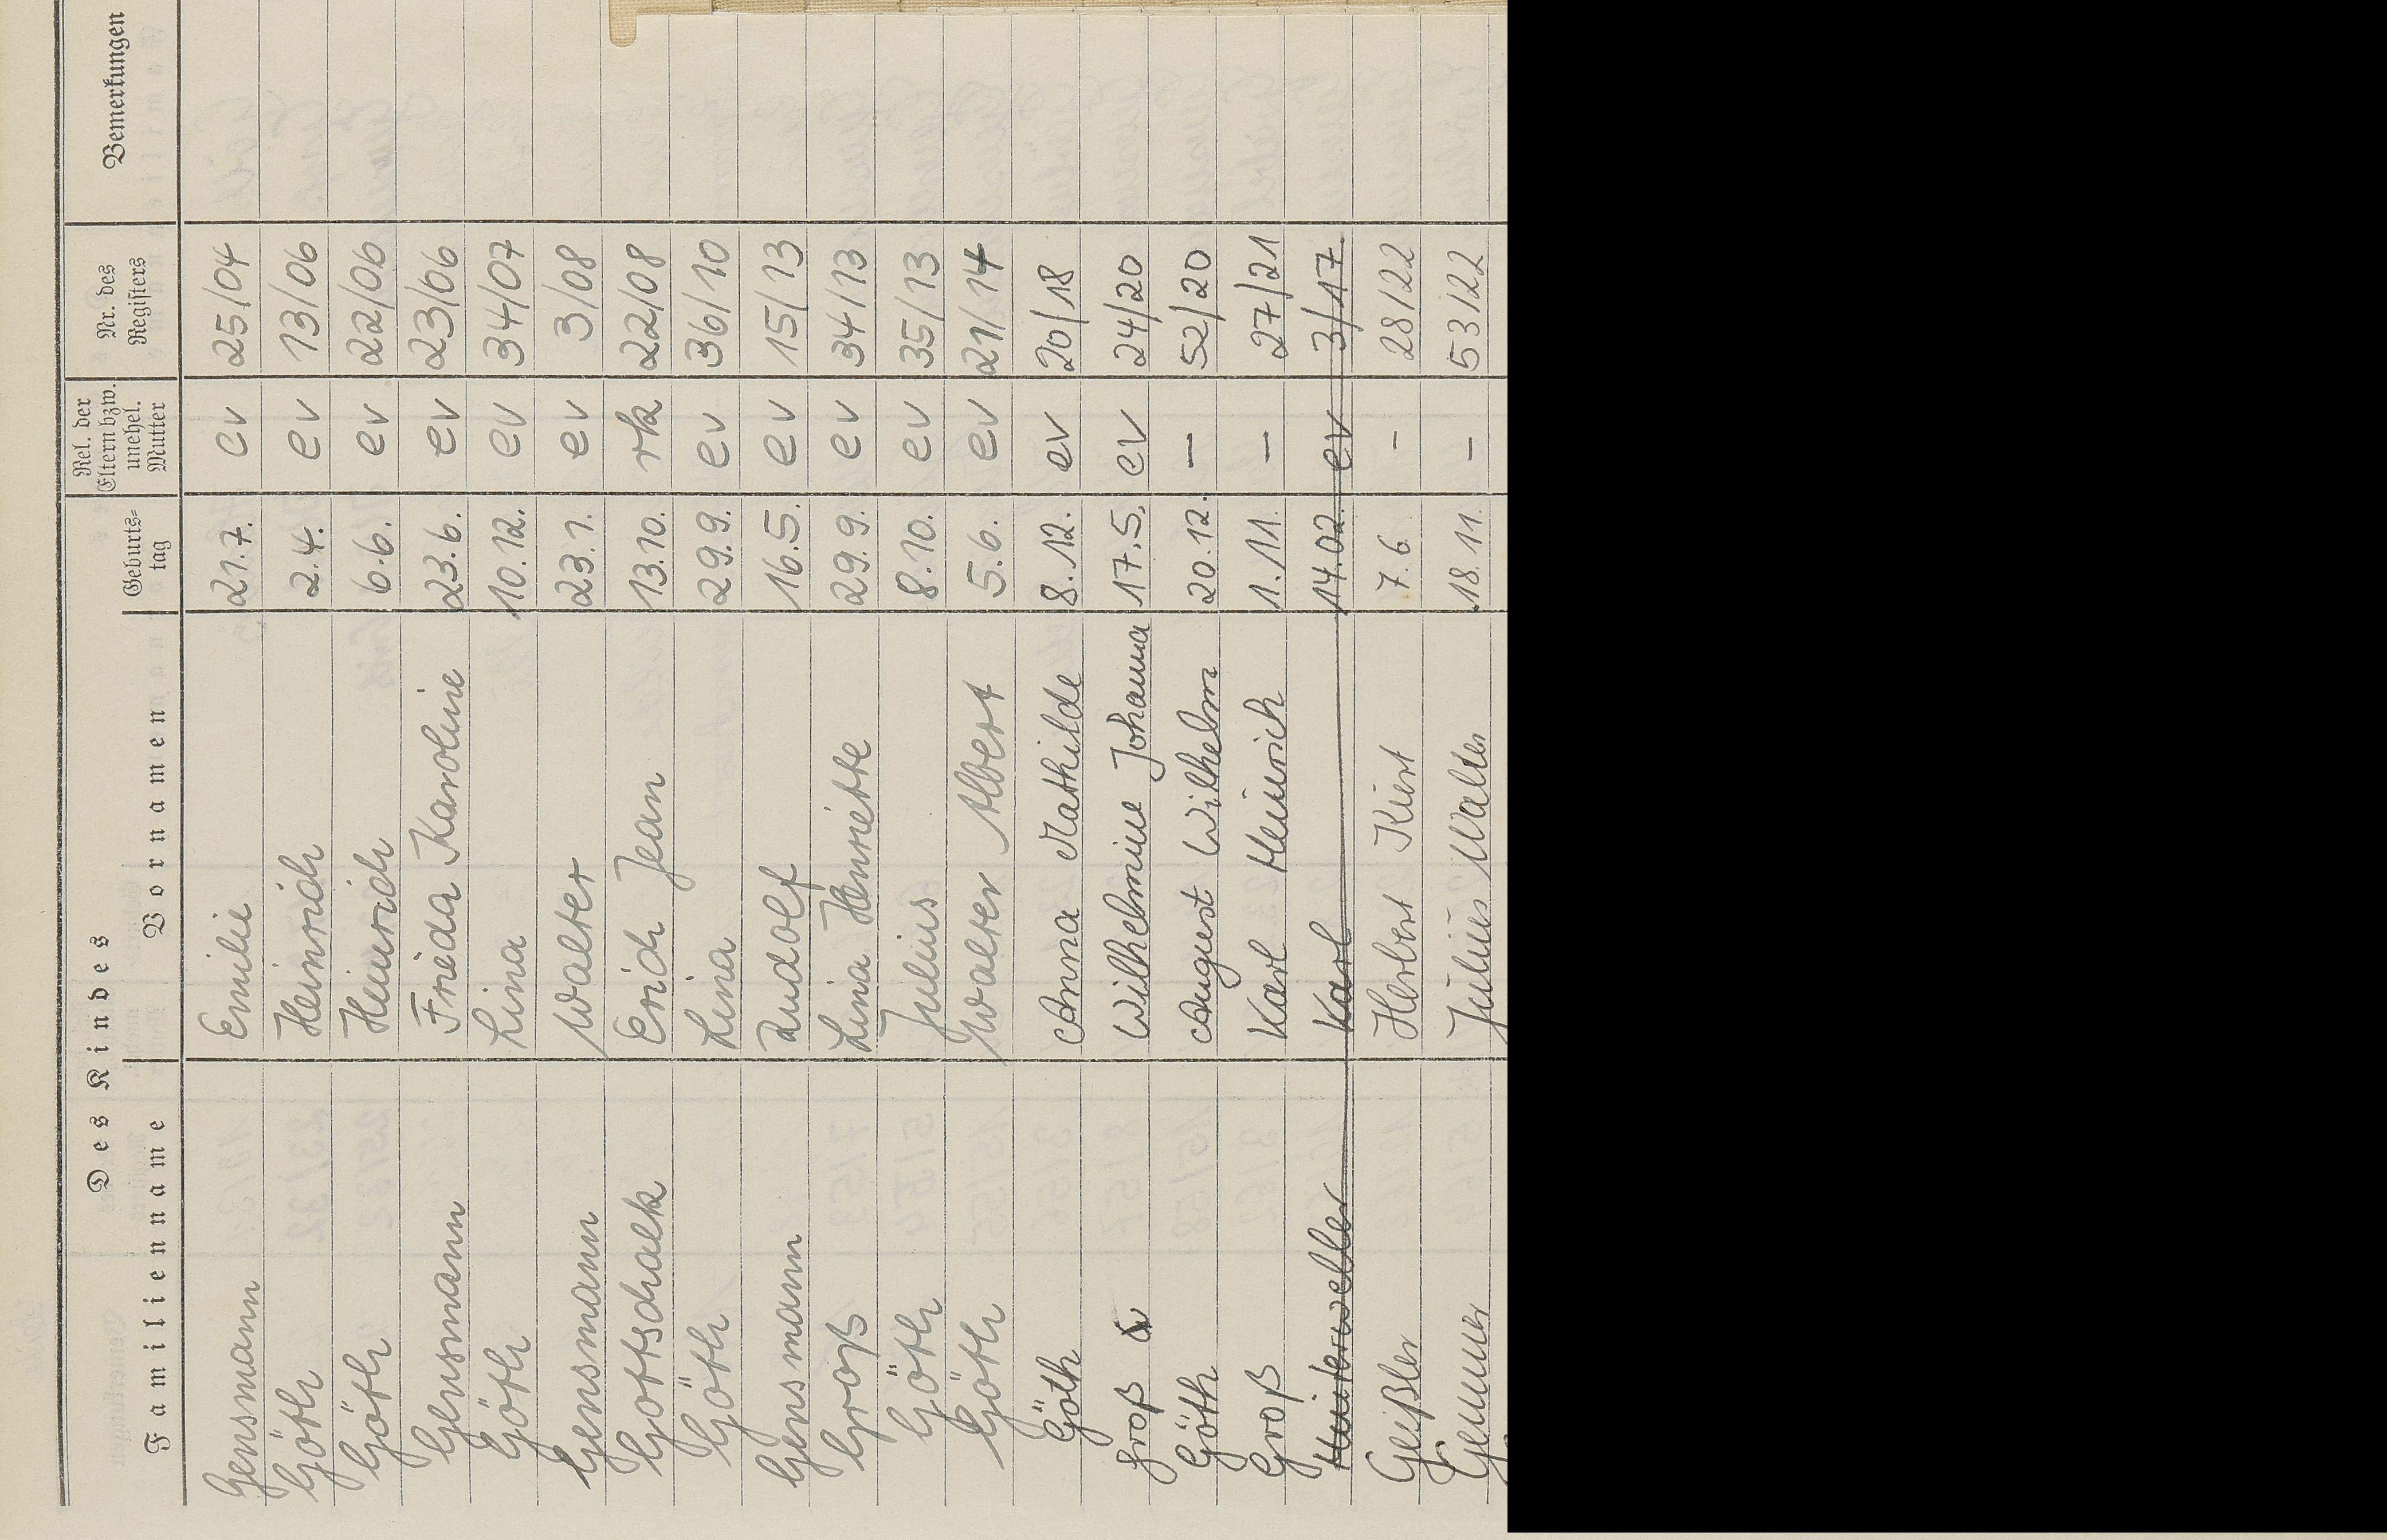 Des Kindes
Familienname Vornamen Geburts= tag Rel. der Eltern bzw. unehel. Mutter Nr. des Registers Bemerkungen
Gensmann Emilie 21.7. ev 25/04
Göth Heinrich 2.4. ev 13/06
Göth Heinrich 6.6. ev 22/06
Gensmann Frieda Karoline 23.6. ev 23/06
Göth Lina 10.12. ev 34/07
Gensmann Walter 23.1. ev 3/08
Gottschalk Erich Jean 13.10. rk 22/08
Göth Lina 29.9. ev 36/10
Gensmann Rudolf 16.5. ev 15/13
Groß Lina Henriette 29.9. ev 34/13
Göth Julius 8.10. ev 35/13
Göth Walter Albert 5.6. ev 21/14
Göth Anna Mathilde 8.12. ev 20/18
Groß Wilhelmine Johanna 17.5. ev 24/20
Göth August Wilhelm 20.12. – 52/20
Groß Karl Heinrich 1.11. – 27/21
Hinterweller Karl 14.02. ev 3/17
Geißler Herbert Kurt 7.6. – 28/22
Gemmer Julius Walter 18.11. – 53/22